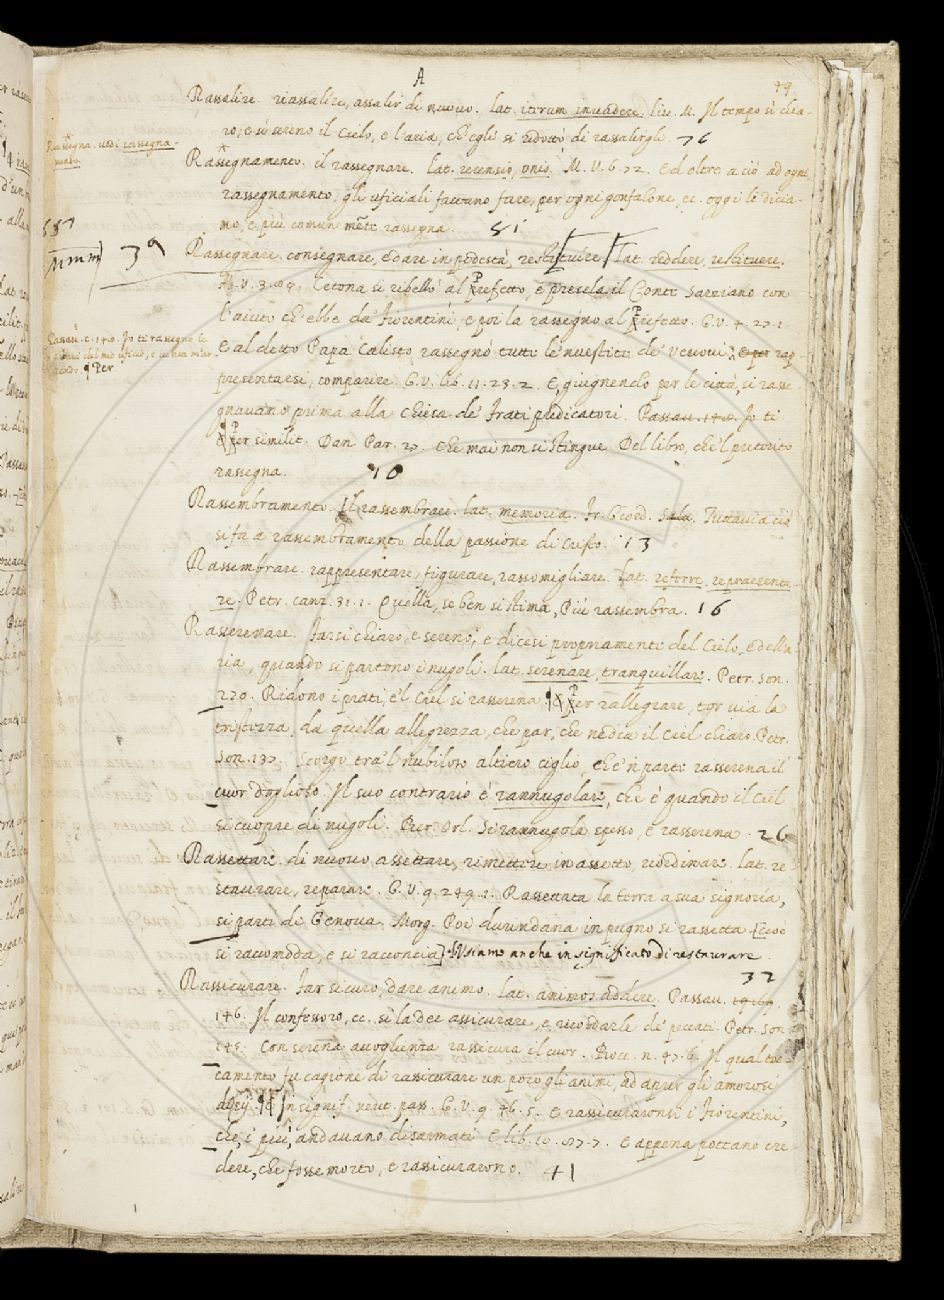 A
49
Rassalire. riassalire, assalir di nuovo. lat. iterum invadere. liv. M. Il tempo si chia-
ro, e sì sereno il Cielo, e l'aria, ch'egli si ridotto di rassalirgli. 76
Rassegna. vedi rassegna-
mento.
Rassegnamento. il rassegnare. lat. recensio, onis. M. V. 6. 72. Ed oltre a ciò ad ogni
rassegnamento, gli uficiali facevano fare, per ogni gonfalone, ec. oggi le dicia-
mo, e più comunemẽte rassegna. 81
687
39
Rassegnare. consegnare, e dare in podestà, restituire. lat. reddere, restituere.
M. V. 3. Cetona si ribellò al Prefetto, e presela il Conte Sarziano con
l'aiuto ch'ebbe da' Fiorentini, e poi la rassegnò al Prefetto. G. V. 4. 27. 1.
E al detto Papa Calisto rassegnò tutte le 'nvestiture de' Vescovi. E per rap-
presentarsi, comparire. G. V. lib. 11. 23. 2. E, giugnendo per le città, si rasse-
gnavano prima alla chiesa de' frati predicatori. Passav. 140. Io ti
Passav. c. 140. Io ti rassegno le
del mio uficio, e
Per
Per similit. Dan. Par. 23. che mai non si stingue Del libro, che 'l preterito
rassegna. 10
Rassembramento. Il rassembrare. lat. memoria. Fr. Giord. Salu. Tuttavia ciò
si fà a rassembramento della passione di Cristo. 13
Rassembrare. rappresentare, figurare, rassomigliare. lat. referre, repraesenta-
re. Petr. canz. 31. 1. Quella, se ben si stima, Più rassembra. 16
Rasserenare. Farsi chiaro, e sereno; e dicesi propriamente del Cielo, e dell'a-
ria, quando si partono i nugoli. lat. serenare, tranquillare. Petr. son.
270. Ridono i prati, e 'l Ciel si rasserena. Per rallegrare, tor via la
tristizza, da quella allegrezza, che par, che ne dia il Ciel chiaro. Petr.
Son. 137. Scorgo tra 'l nubiloso altiero ciglio, Che 'n parte rasserena il
cuor doglioso. Il suo contrario è rannugolare, che è quando il Ciel
si cuopre di nugoli. Pier. Orl. Si rannugola spesso, e rasserena. 26
Rassettare. di nuovo assettare, rimettere in assetto, riordinare. lat. re-
staurare, reparare. G. V. 9. 249. 1. Rassettata la terra a sua signoria,
si partì di Genova. Morg. Poi durindana in pugno si rassetta [cioè
si raccomoda, e si racconcia] Usiamo anche in significato di restaurare.
32
Rassicurare. Far sicuro, dare animo. lat. animos addere. Passav.
146. Il confessoro, ec. si la dee assicurare, e ricordarle de' peccati. Petr. Son.
145. Con serena accoglienza rassicura il cuor. Bocc. n. 47. 6. Il qual toc-
camento fu cagione di rassicurare un poco gli animi, ad aprir gli amorosi
disij. In signif. neut. pass. G. V. 9. 46. 5. E rassicuraronsi i Fiorentini,
che, i più, andavano disarmati. E lib. 10. 87. 7. E appena poteano cre-
dere, che fosse morto, e rassicurarono. 41